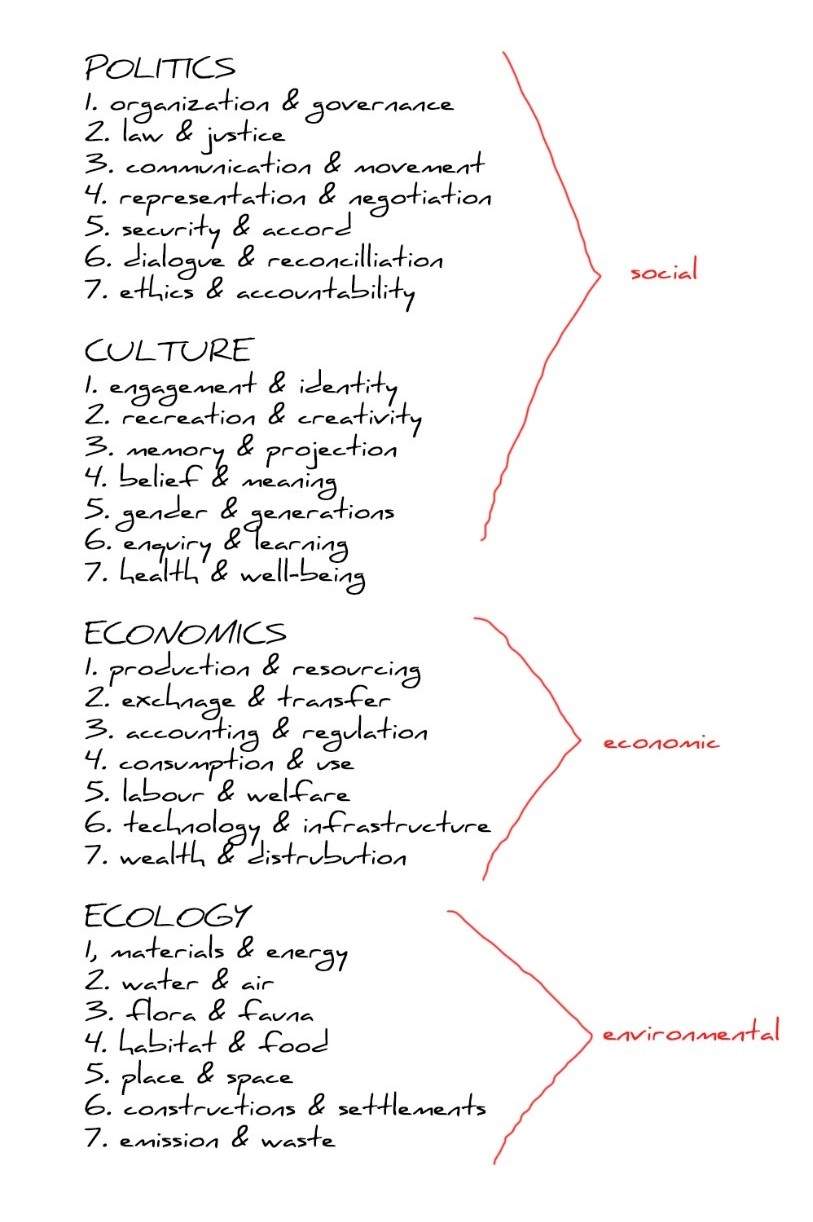 POLITICS
1. organization & governance
2. law & justice
3. communication & movement
4. representation & negotiation
5. security & accord
6. dialogue & reconcilliation
7. ethics & accountability
social
CULTURE
1. engagement & identity
2. recreation & creativity
3. memory & projection
4. belief & meaning
5. gender & generations
6. enquiry & learning
7. health & well-being
ECONOMICS
1. production & resourcing
2. exchnage & transfer
3. accounting & regulation
4. consumption & use
5. labour & welfare
6. technology & infrastructure
7. wealth & distrubution
economic
ECOLOGY
1, materials & energy
2. water & air
3. flora & fauna
4. habitat & food
5. place & space
6. constructions & settlements
7. emission & waste
environmental